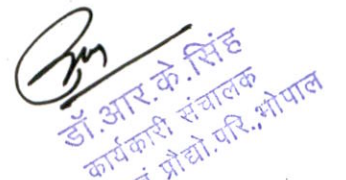 डॉ.आर.के.सिंह
कार्यकारी संचालक
एवं प्रौद्यो.परि.,भोपाल